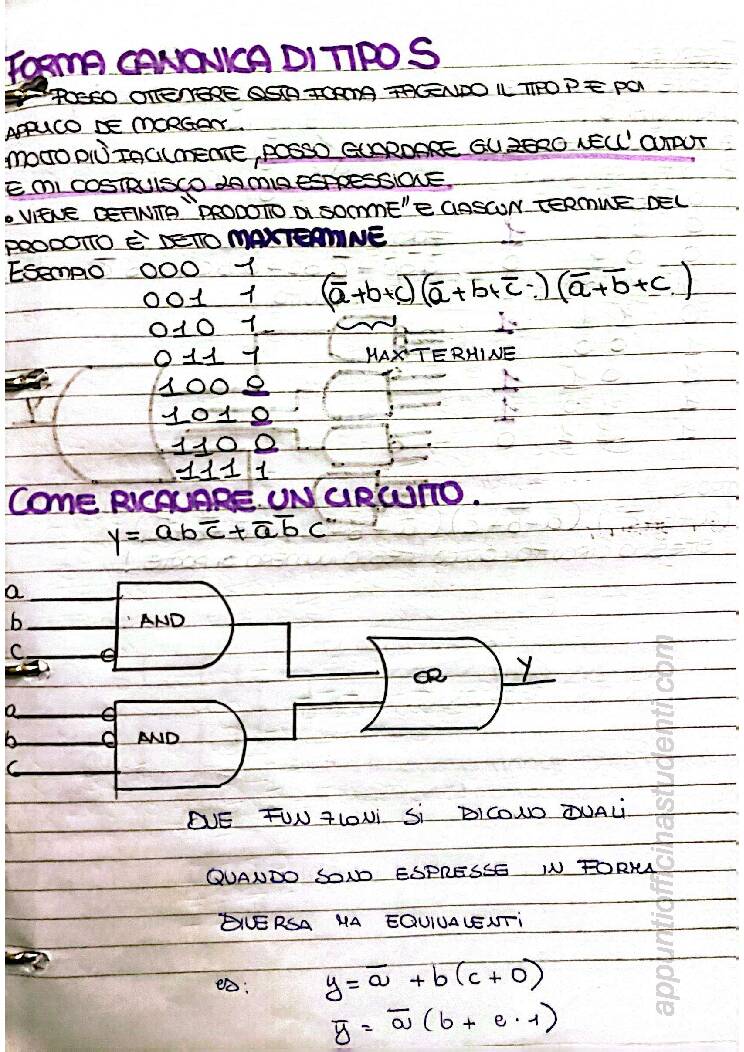 FORMA CANONICA DI TIPO S
POSSO OTTENERE QSTA FORMA FACENDO IL TIPO P E POI
APPLICO DE MORGAN.
MOLTO PIÙ FACILMENTE, POSSO GUARDARE GLI ZERO NELL'OUTPUT
E MI COSTRUISCO LA MIA ESPRESSIONE.
• VIENE DEFINITA "PRODOTTO DI SOMME" E CIASCUN TERMINE DEL
PRODOTTO È DETTO MAXTERMINE
ESEMPIO 000 1
001 1 (a̅+b+c)(a̅+b+c̅)(a̅+b̅+c)
010 1
011 1 MAXTERMINE
100 0
101 0
110 0
111 1
COME RICAVARE UN CIRCUITO.
y = abc̅ + a̅b̅c
a
b AND
c
OR Y
a
b AND
c
DUE FUNZIONI SI DICONO DUALI
QUANDO SONO ESPRESSE IN FORMA
DIVERSA MA EQUIVALENTI
es: y = a̅ + b(c+0)
y̅ = a̅(b + c·1)
appuntiofficinastudenti.com